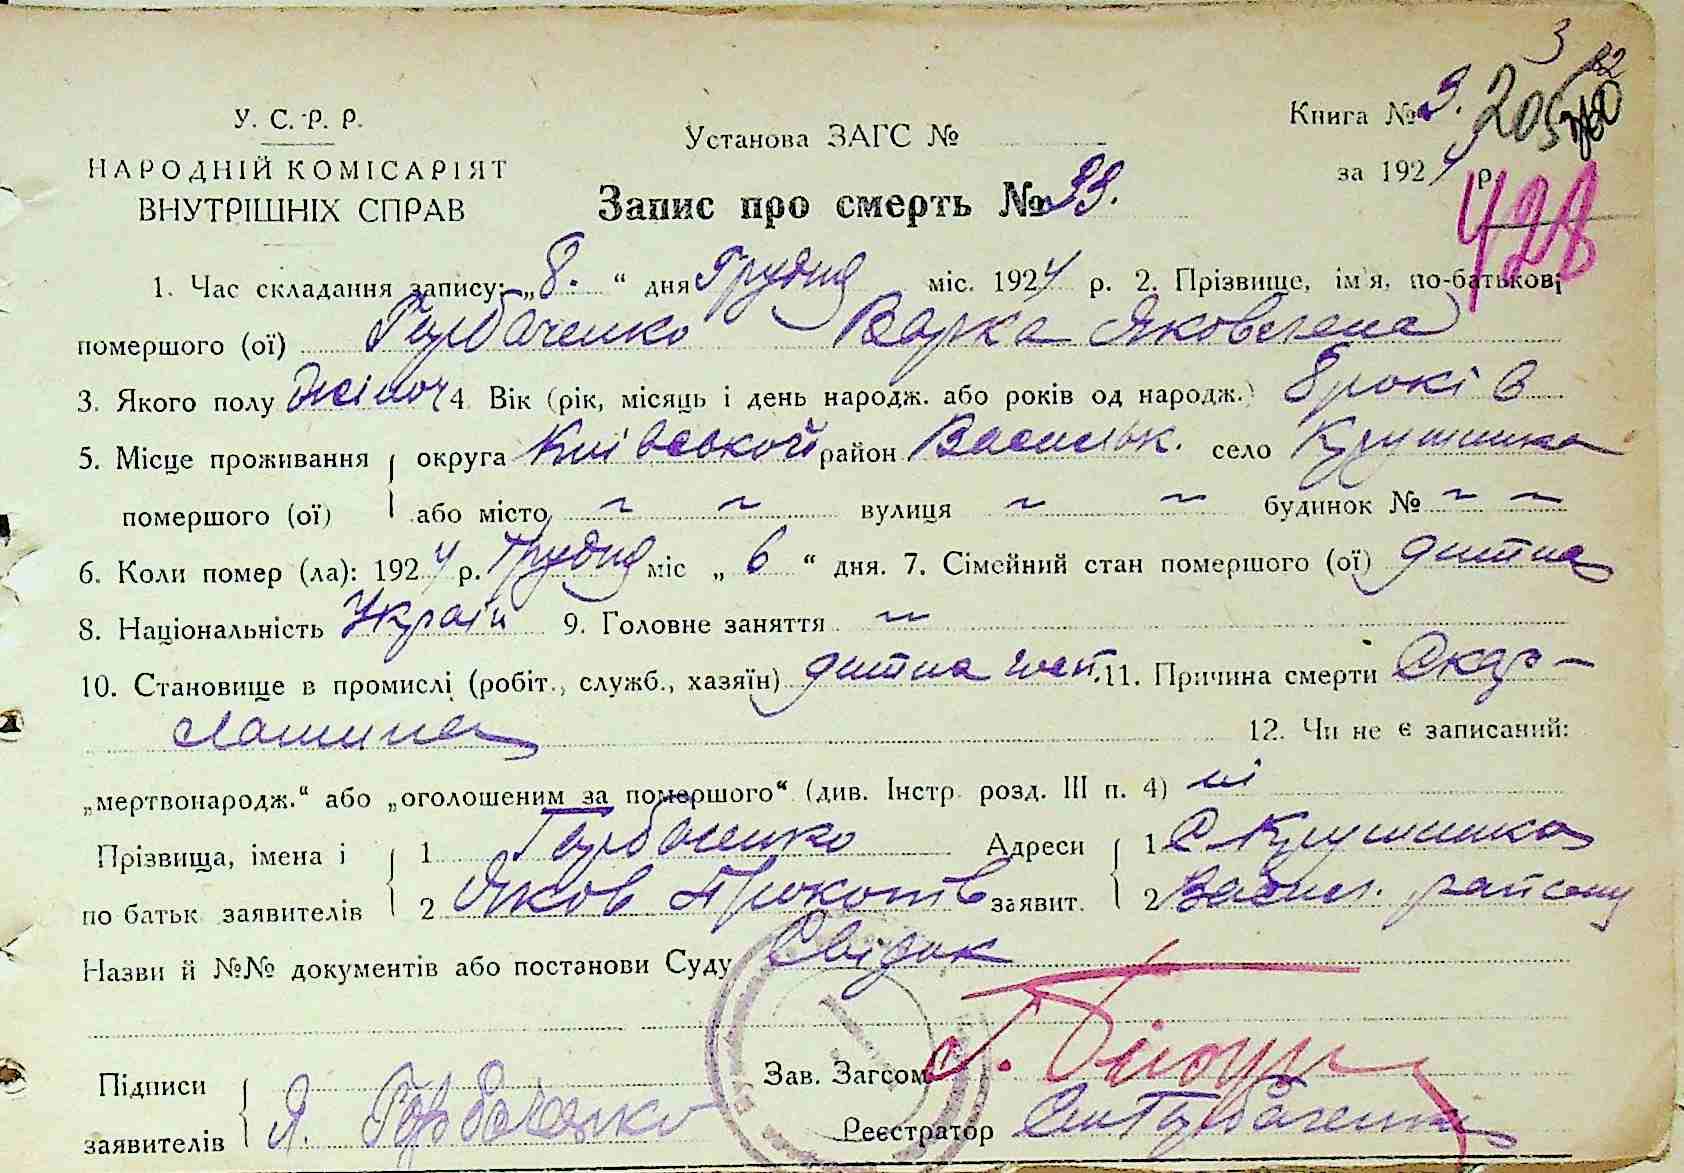 3
82
У. С. Р. Р.
Книга № 9. 205
НАРОДНІЙ КОМІСАРІЯТ
ВНУТРІШНІХ СПРАВ
Установа ЗАГС №
за 1924 р.
428
Запис про смерть № 99.
1. Час складання запису: „8.“ дня Грудня міс. 1924 р. 2. Прізвище, ім'я, по-батькові
помершого (ої) Горбаченко Варка Яковлена
3. Якого полу жіноч 4. Вік (рік, місяць і день народж. або років од народж.) 8 років
5. Місце проживання округа Київськой район Васильк. село Крушинка
помершого (ої) або місто ~ ~ вулиця ~ ~ будинок № ~ ~
6. Коли помер (ла): 1924 р. Грудня міс „ 6 “ дня. 7. Сімейний стан помершого (ої) дитина
8. Національність Україн 9. Головне заняття ~
10. Становище в промислі (робіт., служб., хазяїн) дитина 11. Причина смерти Скар-
латина 12. Чи не є записаний:
„мертвонародж.“ або „оголошеним за помершого“ (див. Інстр. розд. III п. 4) ні
Прізвища, імена і 1 Горбаченко Адреси 1 С Крушинка
по батьк заявителів 2 Яков Прокопів заявит. 2 Васил. району
Назви й №№ документів або постанови Суду Свідок
Підписи
заявителів Я. Горбаченко
Зав. Загсом
Реєстратор